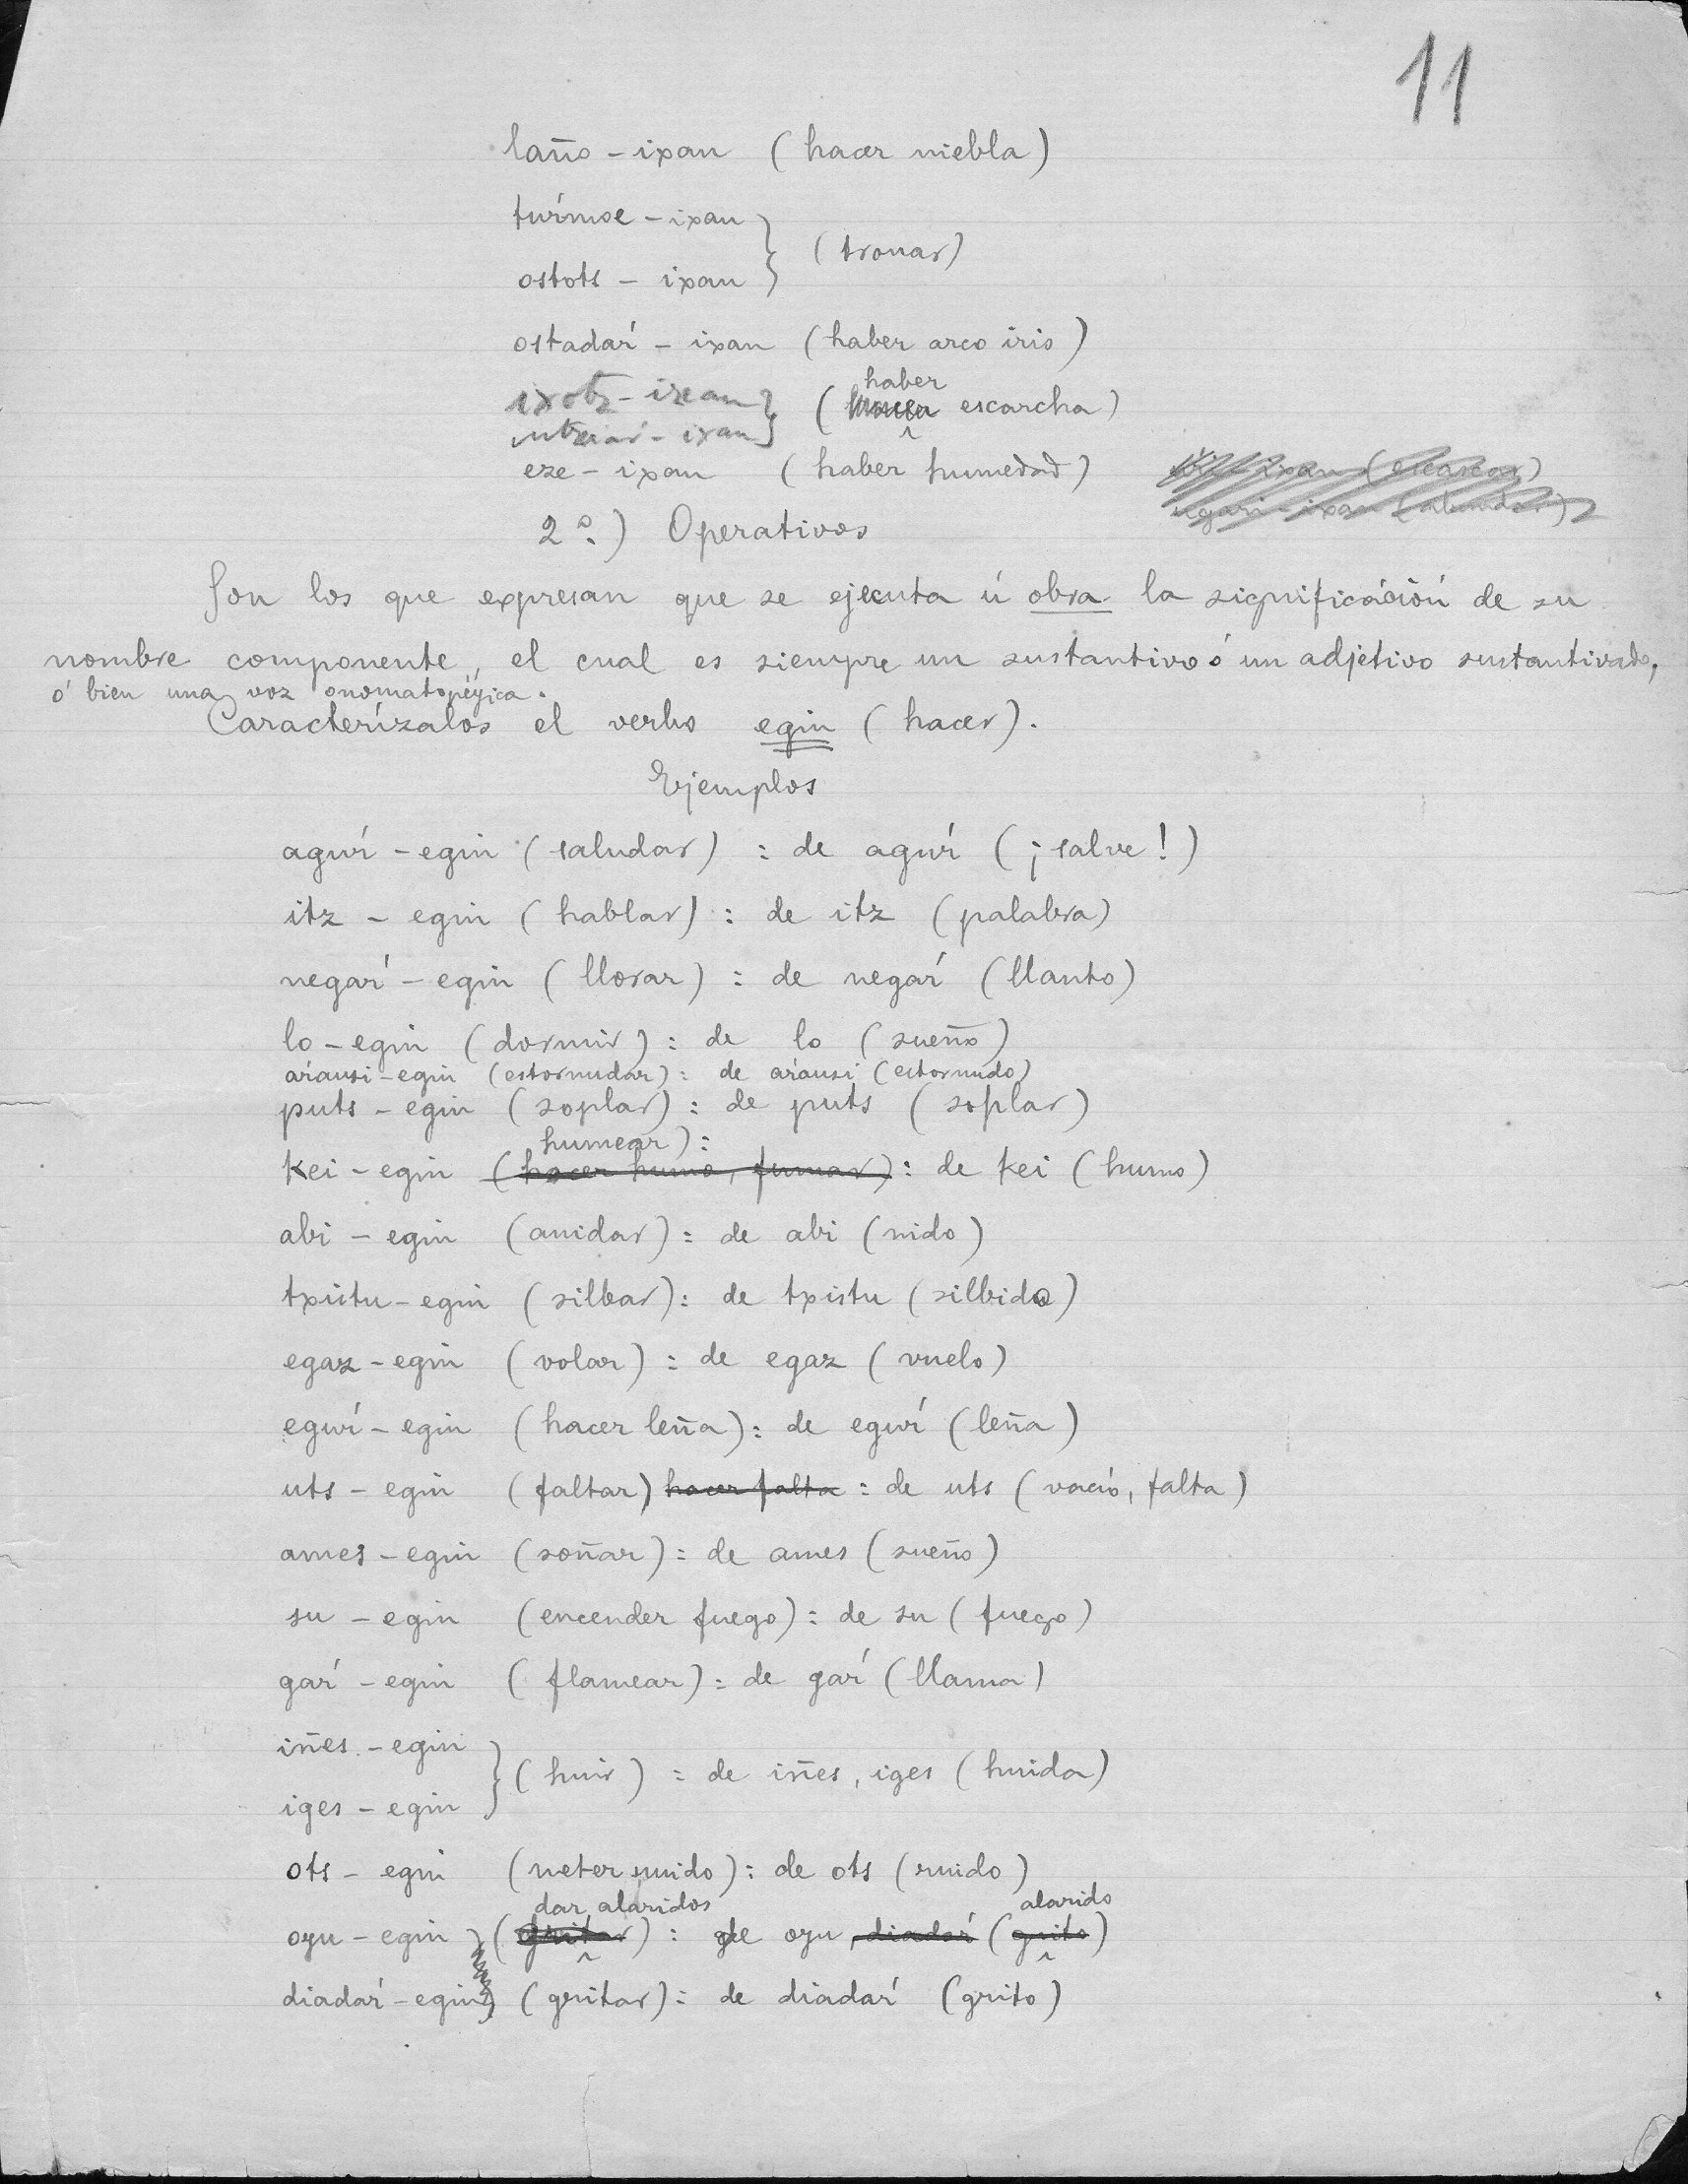 11
laño - ixan (hacer niebla)
turḿoe - ixan
ostots - ixan } (tronar)
ostadaŕ - ixan (haber arco iris)
haber
ixotz - ixan } (hacer escarcha)
- ixan
eze - ixan (haber humedad)
2.º) Operativos
Son los que expresan que se ejecuta ú obra la significación de su
nombre componente, el cual es siempre un sustantivo ó un adjetivo sustantivado,
ó bien una voz onomatopéyica.
Caracterízalos el verbo egin (hacer).
Ejemplos
aguŕ - egin (saludar) : de aguŕ (¡salve!)
itz - egin (hablar) : de itz (palabra)
negaŕ - egin (llorar) : de negaŕ (llanto)
lo - egin (dormir) : de lo (sueño)
aŕausi - egin (estornudar) : de aŕausi (estornudo)
puts - egin (soplar) : de puts (soplar)
humear) :
kei - egin (hacer humo, fumar) : de kei (humo)
abi - egin (anidar) : de abi (nido)
txistu - egin (silbar) : de txistu (silbido)
egaz - egin (volar) : de egaz (vuelo)
eguŕ - egin (hacer leña) : de eguŕ (leña)
uts - egin (faltar) hacer falta : de uts (vació, falta)
ames - egin (soñar) : de ames (sueño)
su - egin (encender fuego) : de su (fuego)
gaŕ - egin (flamear) : de gaŕ (llama)
iñes - egin
iges - egin } (huir) : de iñes, iges (huida)
ots - egin (meter ruido) : de ots (ruido)
dar alaridos alarido
oyu - egin (gritar) : de oyu, diadaŕ (grito)
diadaŕ - egin (gritar) : de diadaŕ (grito)